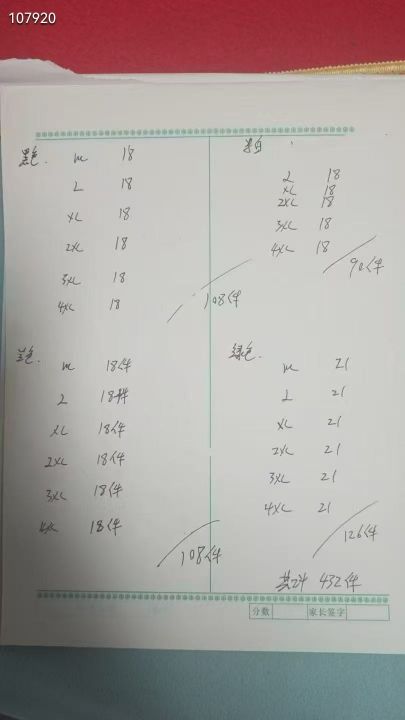 107920
黑色.
M 18
L 18
XL 18
2XL 18
3XL 18
4XL 18
108件
L 18
XL 18
2XL 18
3XL 18
4XL 18
90件
M 18件
L 18件
XL 18件
2XL 18件
3XL 18件
4XL 18件
108件
绿色.
M 21
L 21
XL 21
2XL 21
3XL 21
4XL 21
126件
共计 432件
分数
家长签字